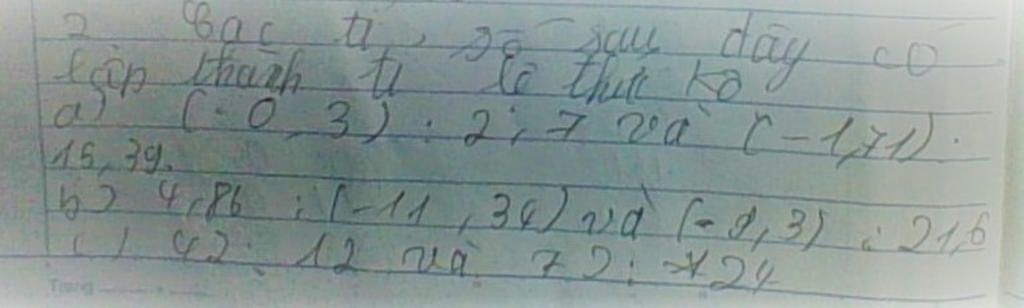 2 Các tỉ số sau đây có
lập thành tỉ lệ thức ko
a) (-0,3) : 2,7 và (-1,71) :
15,39.
b) 4,86 : (-11,34) và (-9,3) : 21,6
c) 42 : 12 và 72 : 24